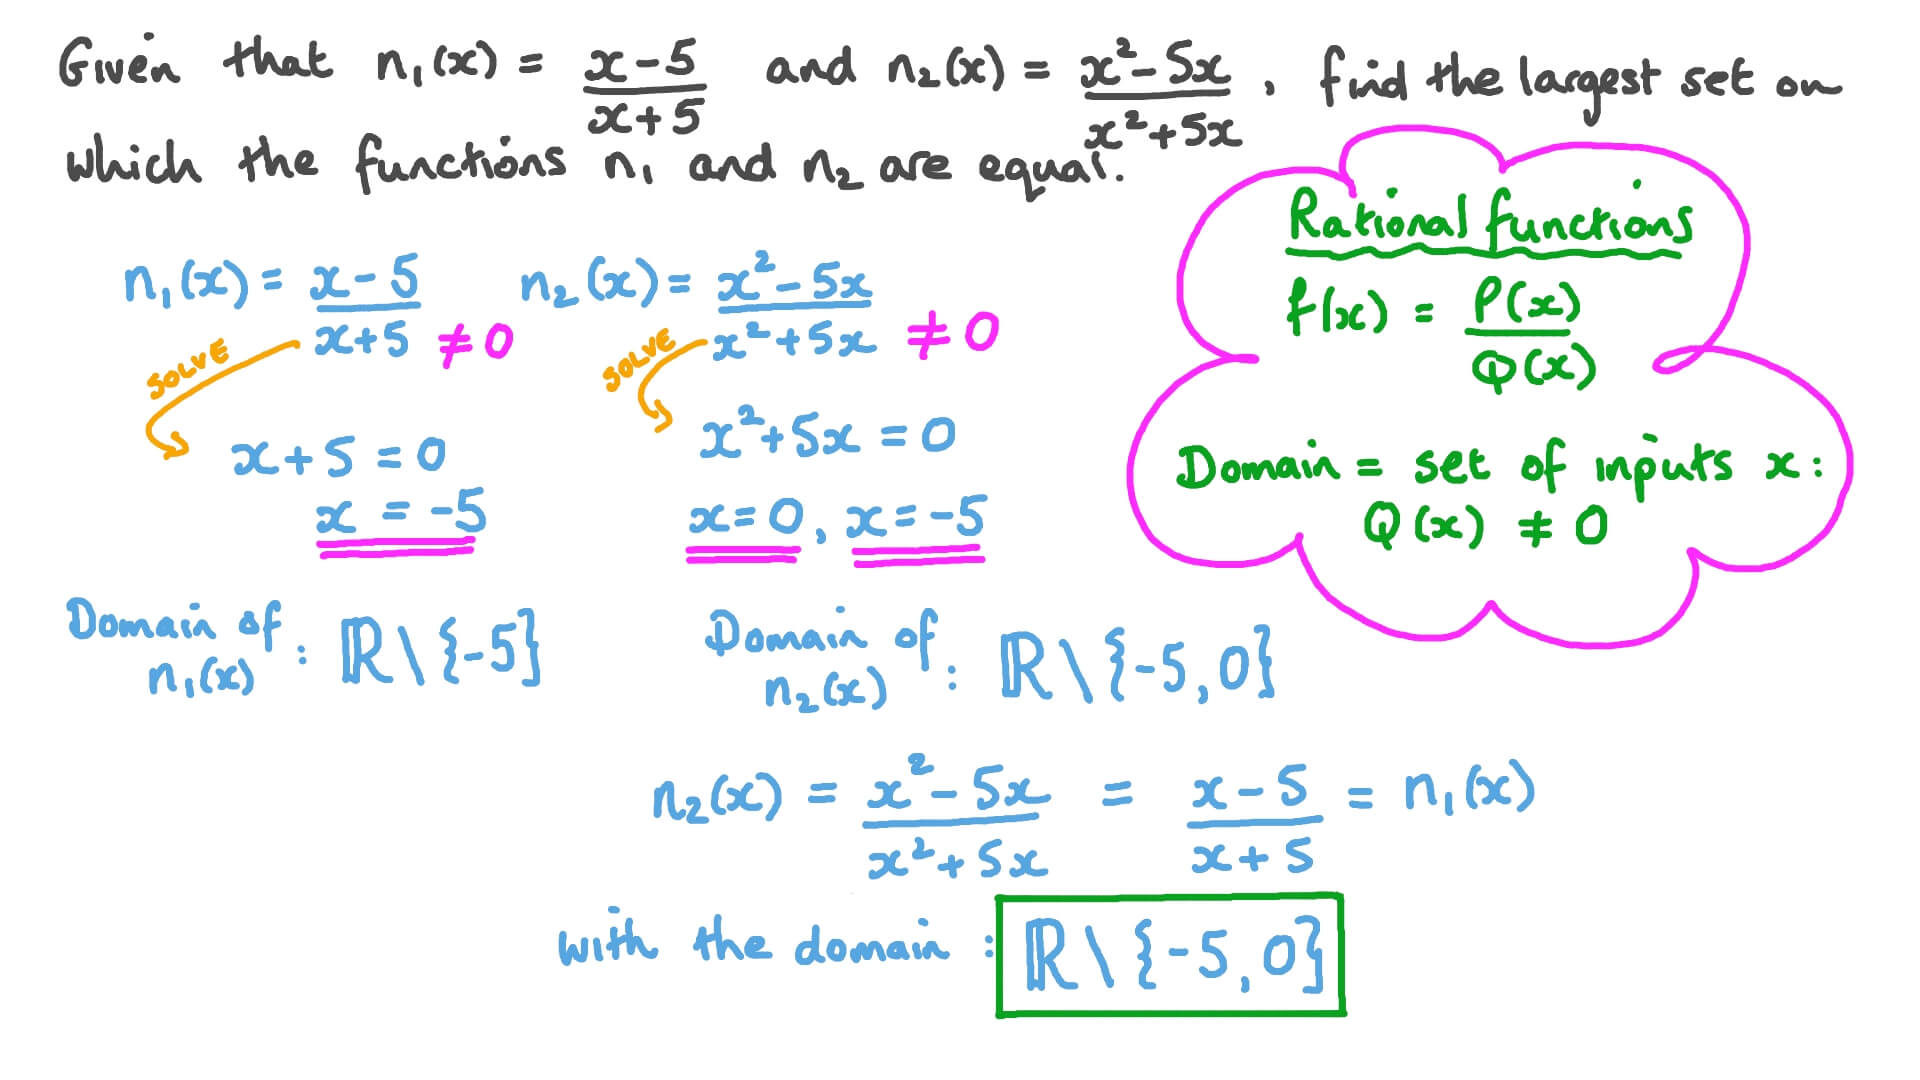 Given that n₁(x) = (x-5)/(x+5) and n₂(x) = (x²-5x)/(x²+5x), find the largest set on
which the functions n₁ and n₂ are equal.
Rational functions
f(x) = P(x)/Q(x)
Domain = set of inputs x:
Q(x) ≠ 0
n₁(x) = (x-5)/(x+5) ≠ 0
SOLVE
x+5 = 0
x = -5
Domain of n₁(x) : ℝ\{-5}
n₂(x) = (x²-5x)/(x²+5x) ≠ 0
SOLVE
x²+5x = 0
x=0, x=-5
Domain of n₂(x) : ℝ\{-5,0}
n₂(x) = (x²-5x)/(x²+5x) = (x-5)/(x+5) = n₁(x)
with the domain : ℝ\{-5,0}